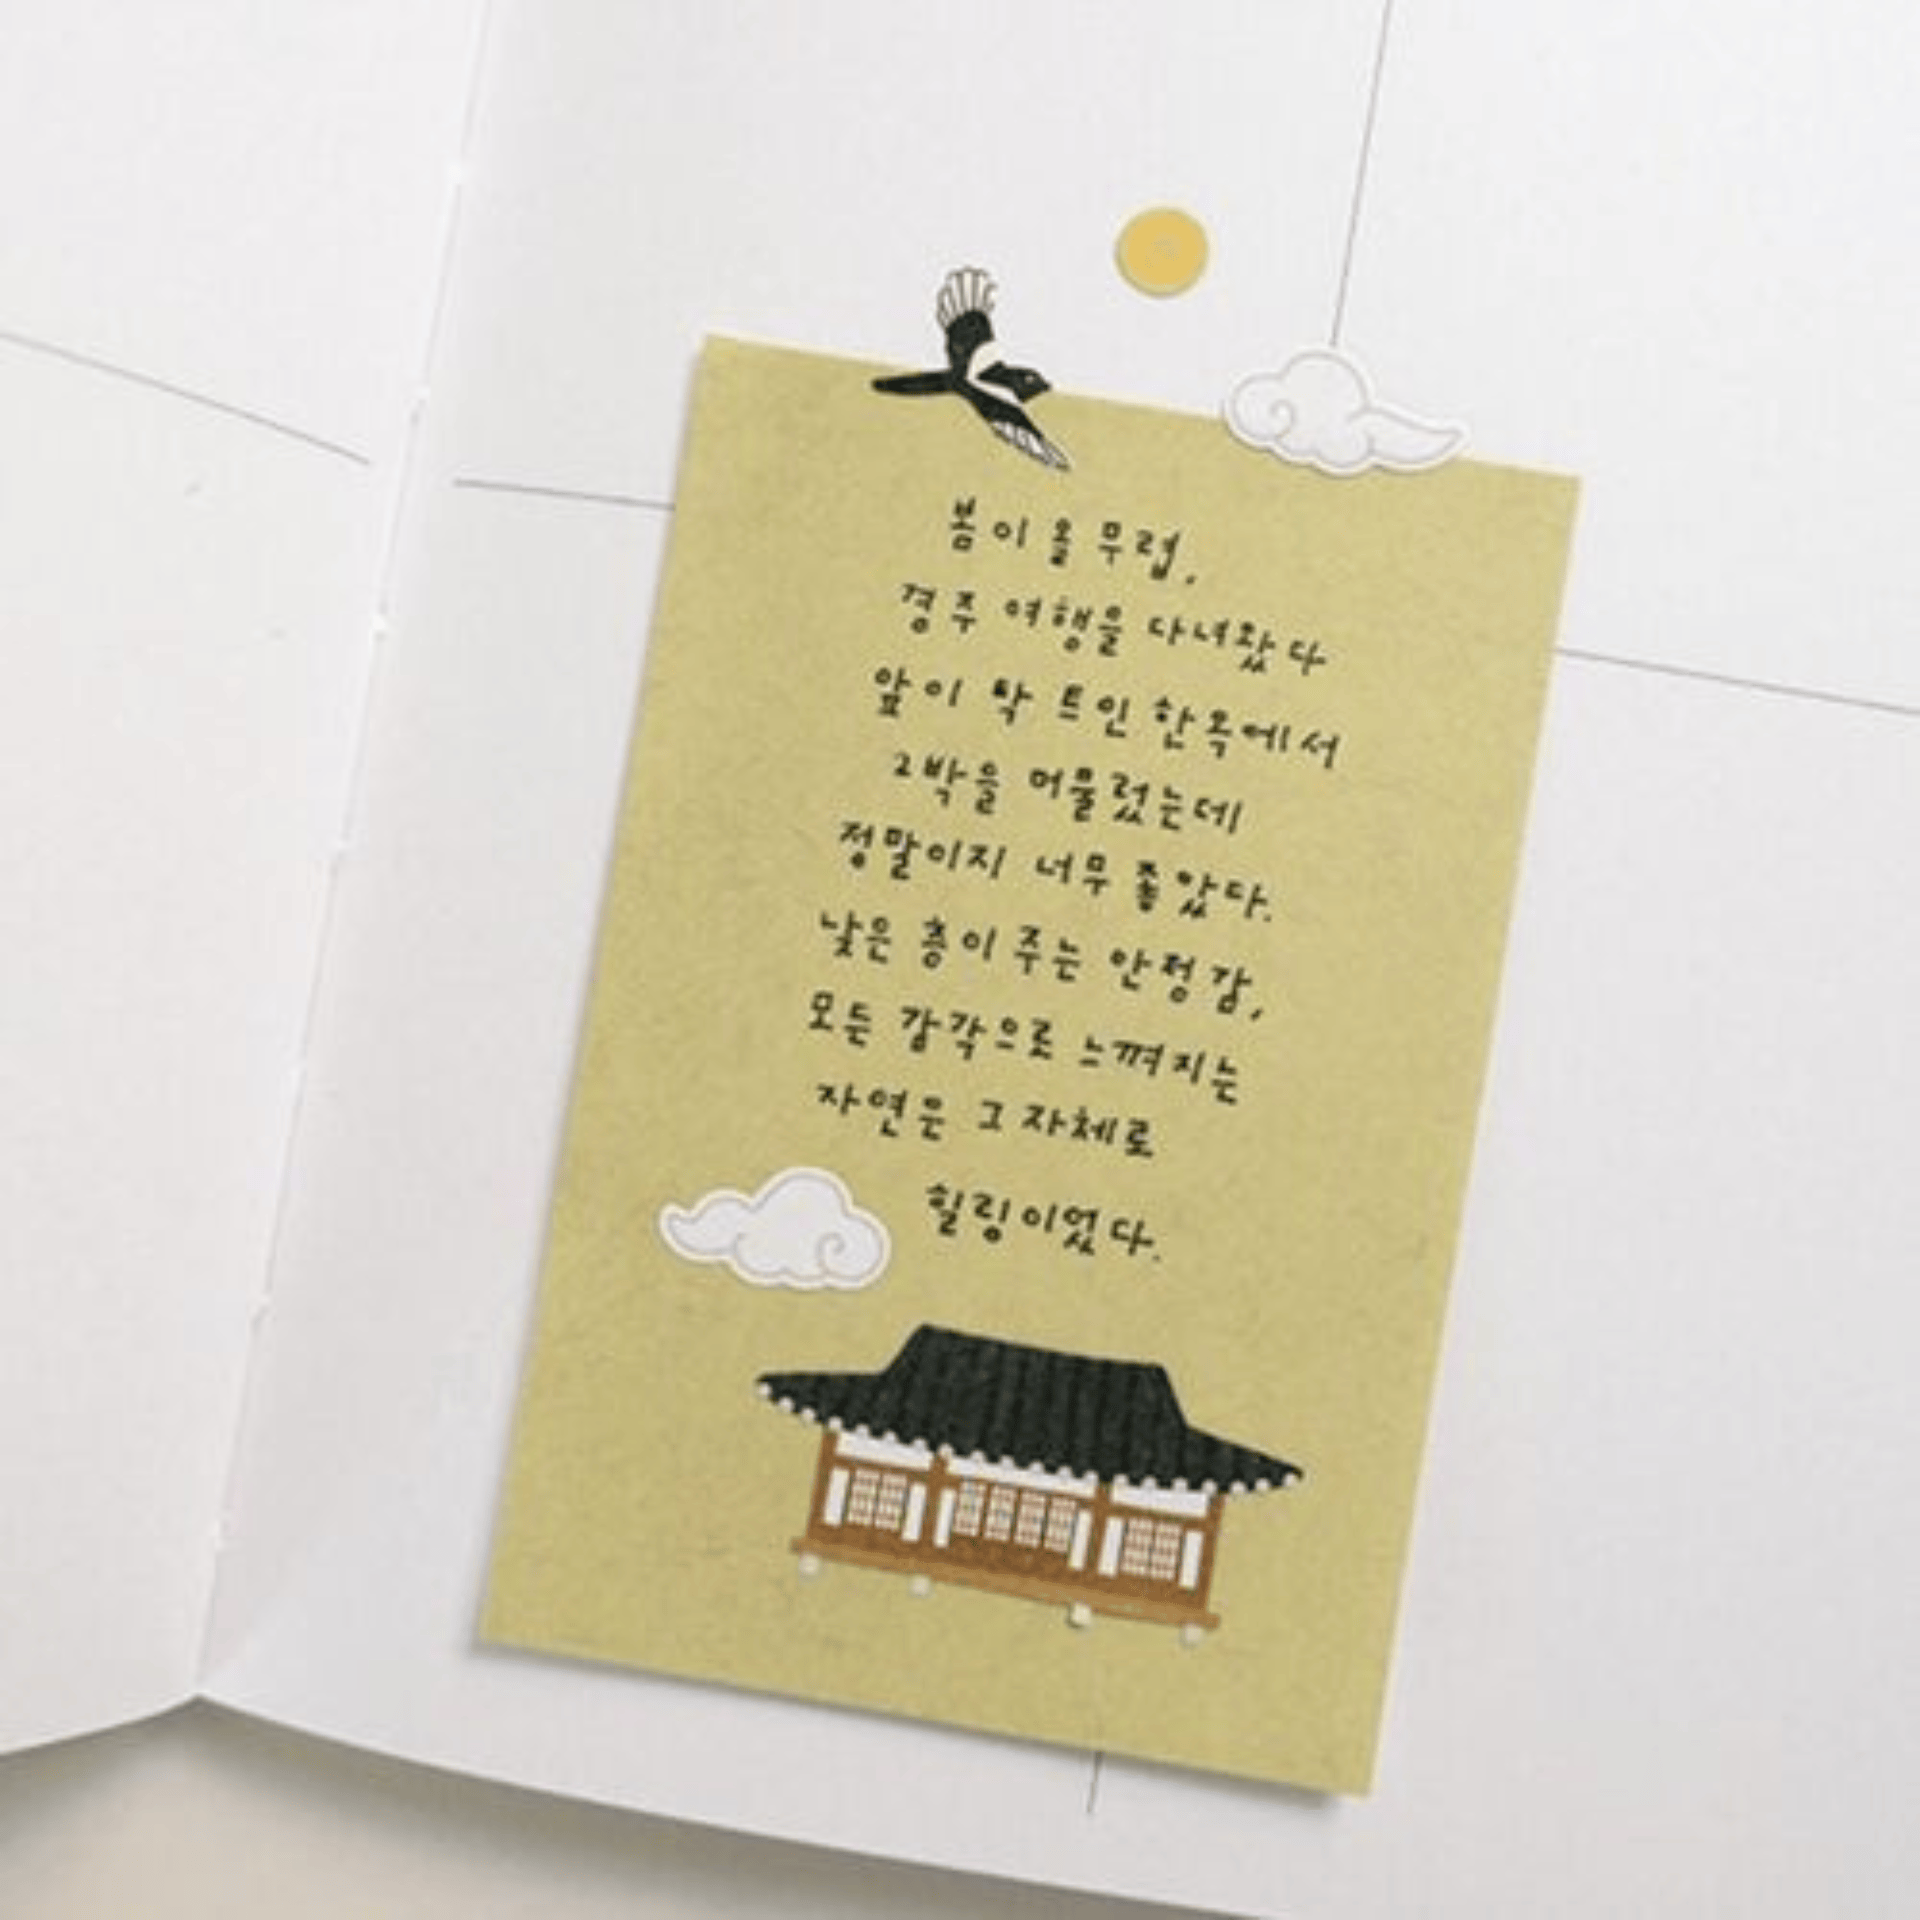 봄이 올 무렵,
경주 여행을 다녀왔다
앞이 탁 트인 한옥에서
2박을 머물렀는데
정말이지 너무 좋았다.
낮은 층이 주는 안정감,
모든 감각으로 느껴지는
자연은 그 자체로
힐링이었다.